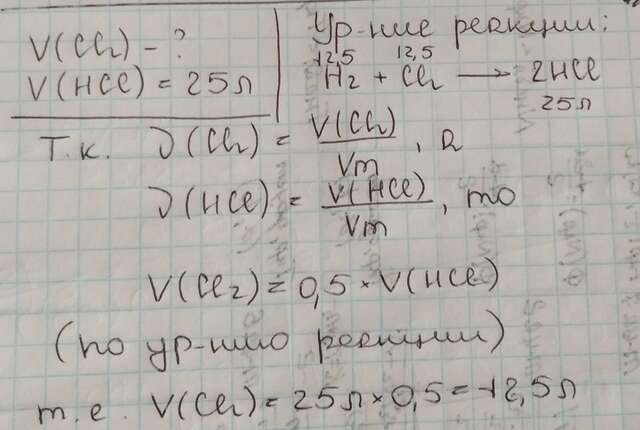 V(Cl₂) - ?
V(HCl) = 25л
Ур-ние реакции:
12,5 12,5
H₂ + Cl₂ → 2HCl
25л
Т.к. ν(Cl₂) = V(Cl₂)/Vm, а
ν(HCl) = V(HCl)/Vm, то
V(Cl₂) = 0,5 × V(HCl)
(по ур-нию реакции)
т.е. V(Cl₂) = 25л × 0,5 = 12,5л